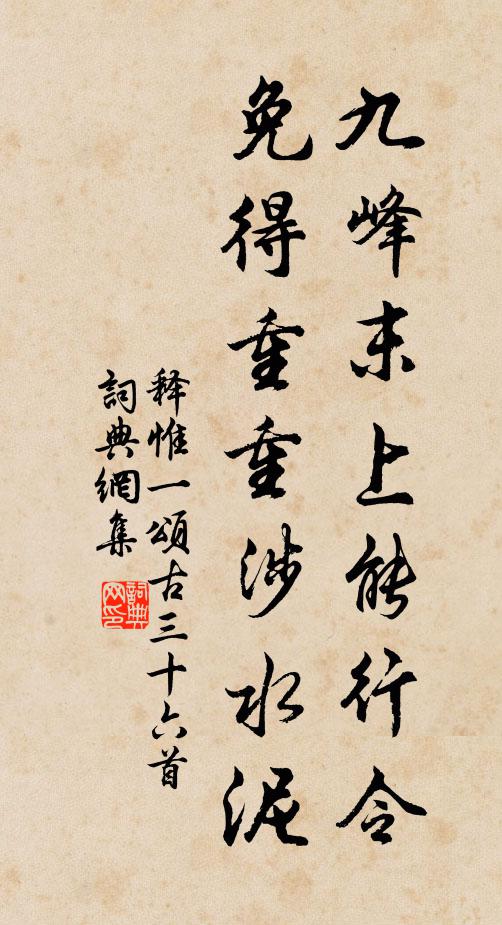 九峰末上能行令
免得重重涉水泥
释惟一頌古三十六首
詞典網集
詞典网印